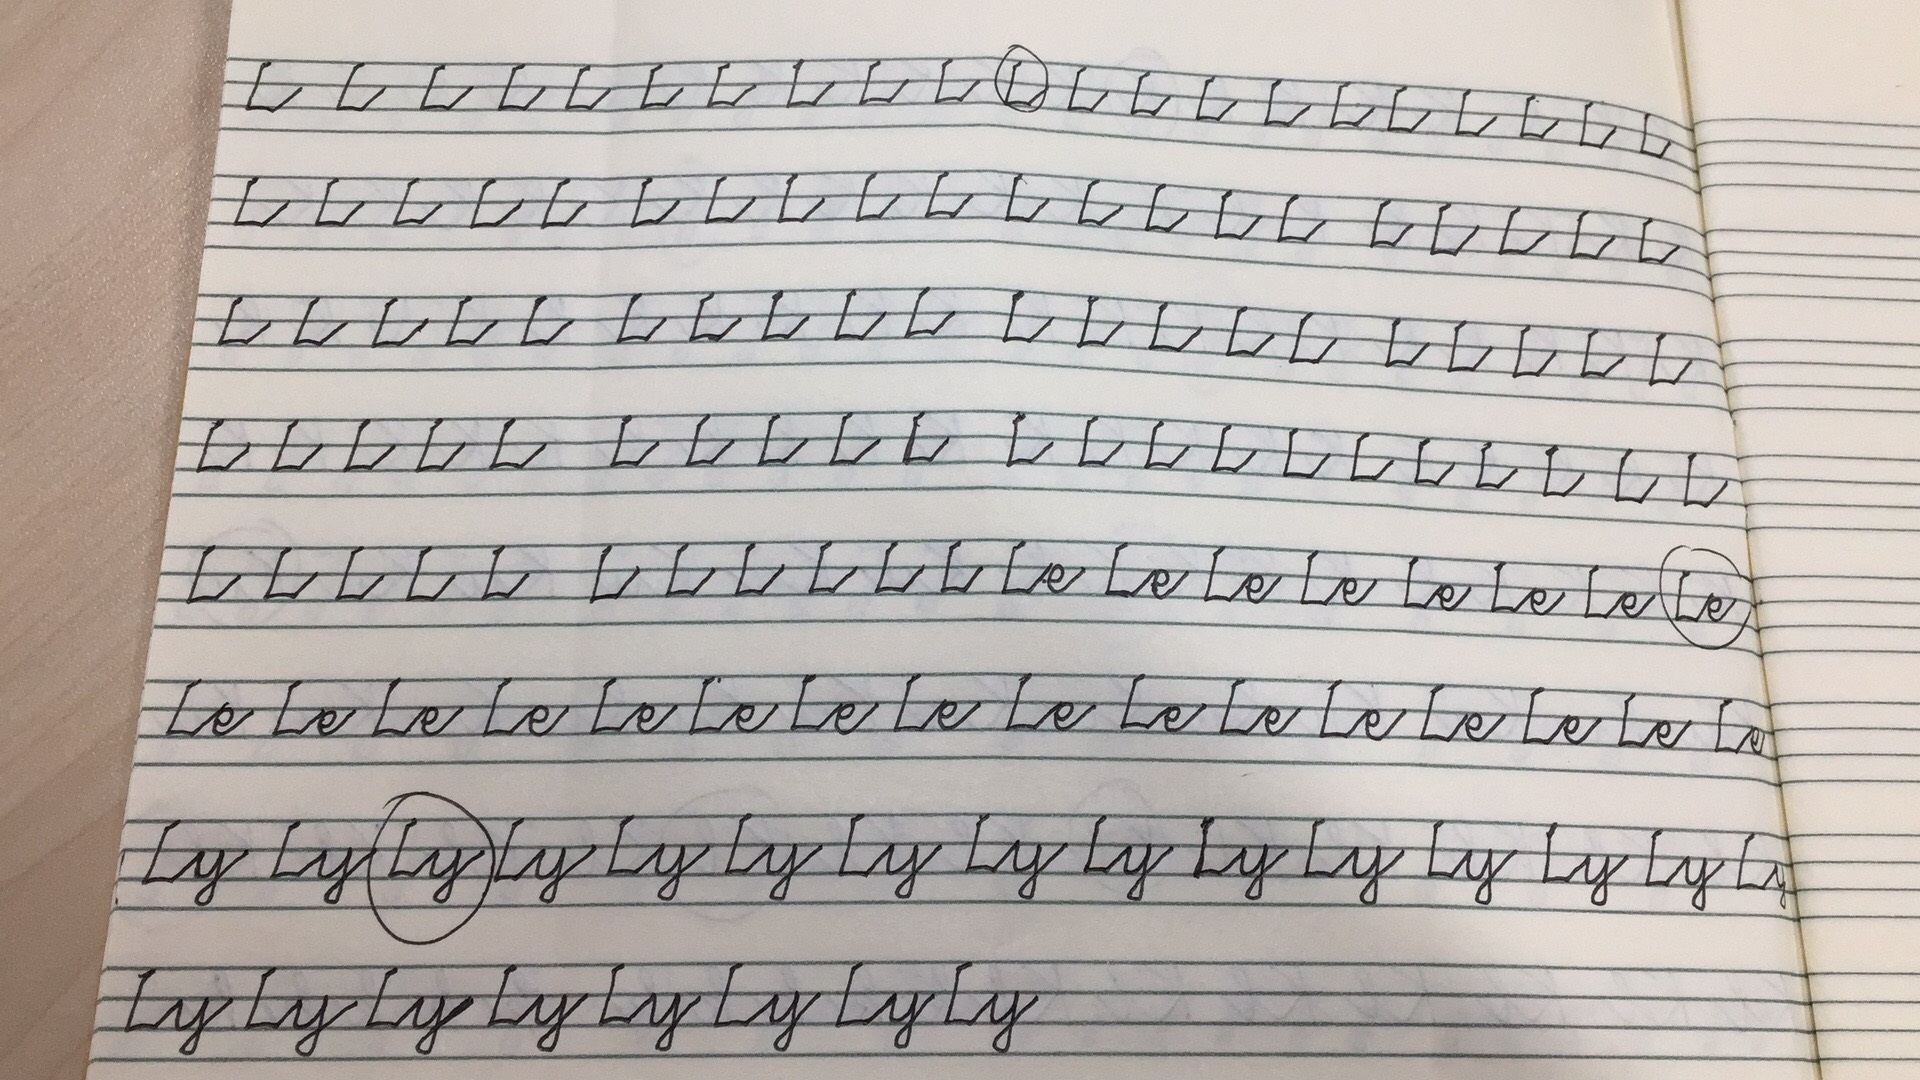 L L L L L L L L L L L L L L L L L L L L L
L L L L L L L L L L L L L L L L L L L L
L L L L L L L L L L L L L L L L L L L L
L L L L L L L L L L L L L L L L L L L L L
L L L L L L L L L L L Le Le Le Le Le Le Le Le
Le Le Le Le Le Le Le Le Le Le Le Le Le Le Le Le
Ly Ly Ly Ly Ly Ly Ly Ly Ly Ly Ly Ly Ly Ly Ly
Ly Ly Ly Ly Ly Ly Ly Ly